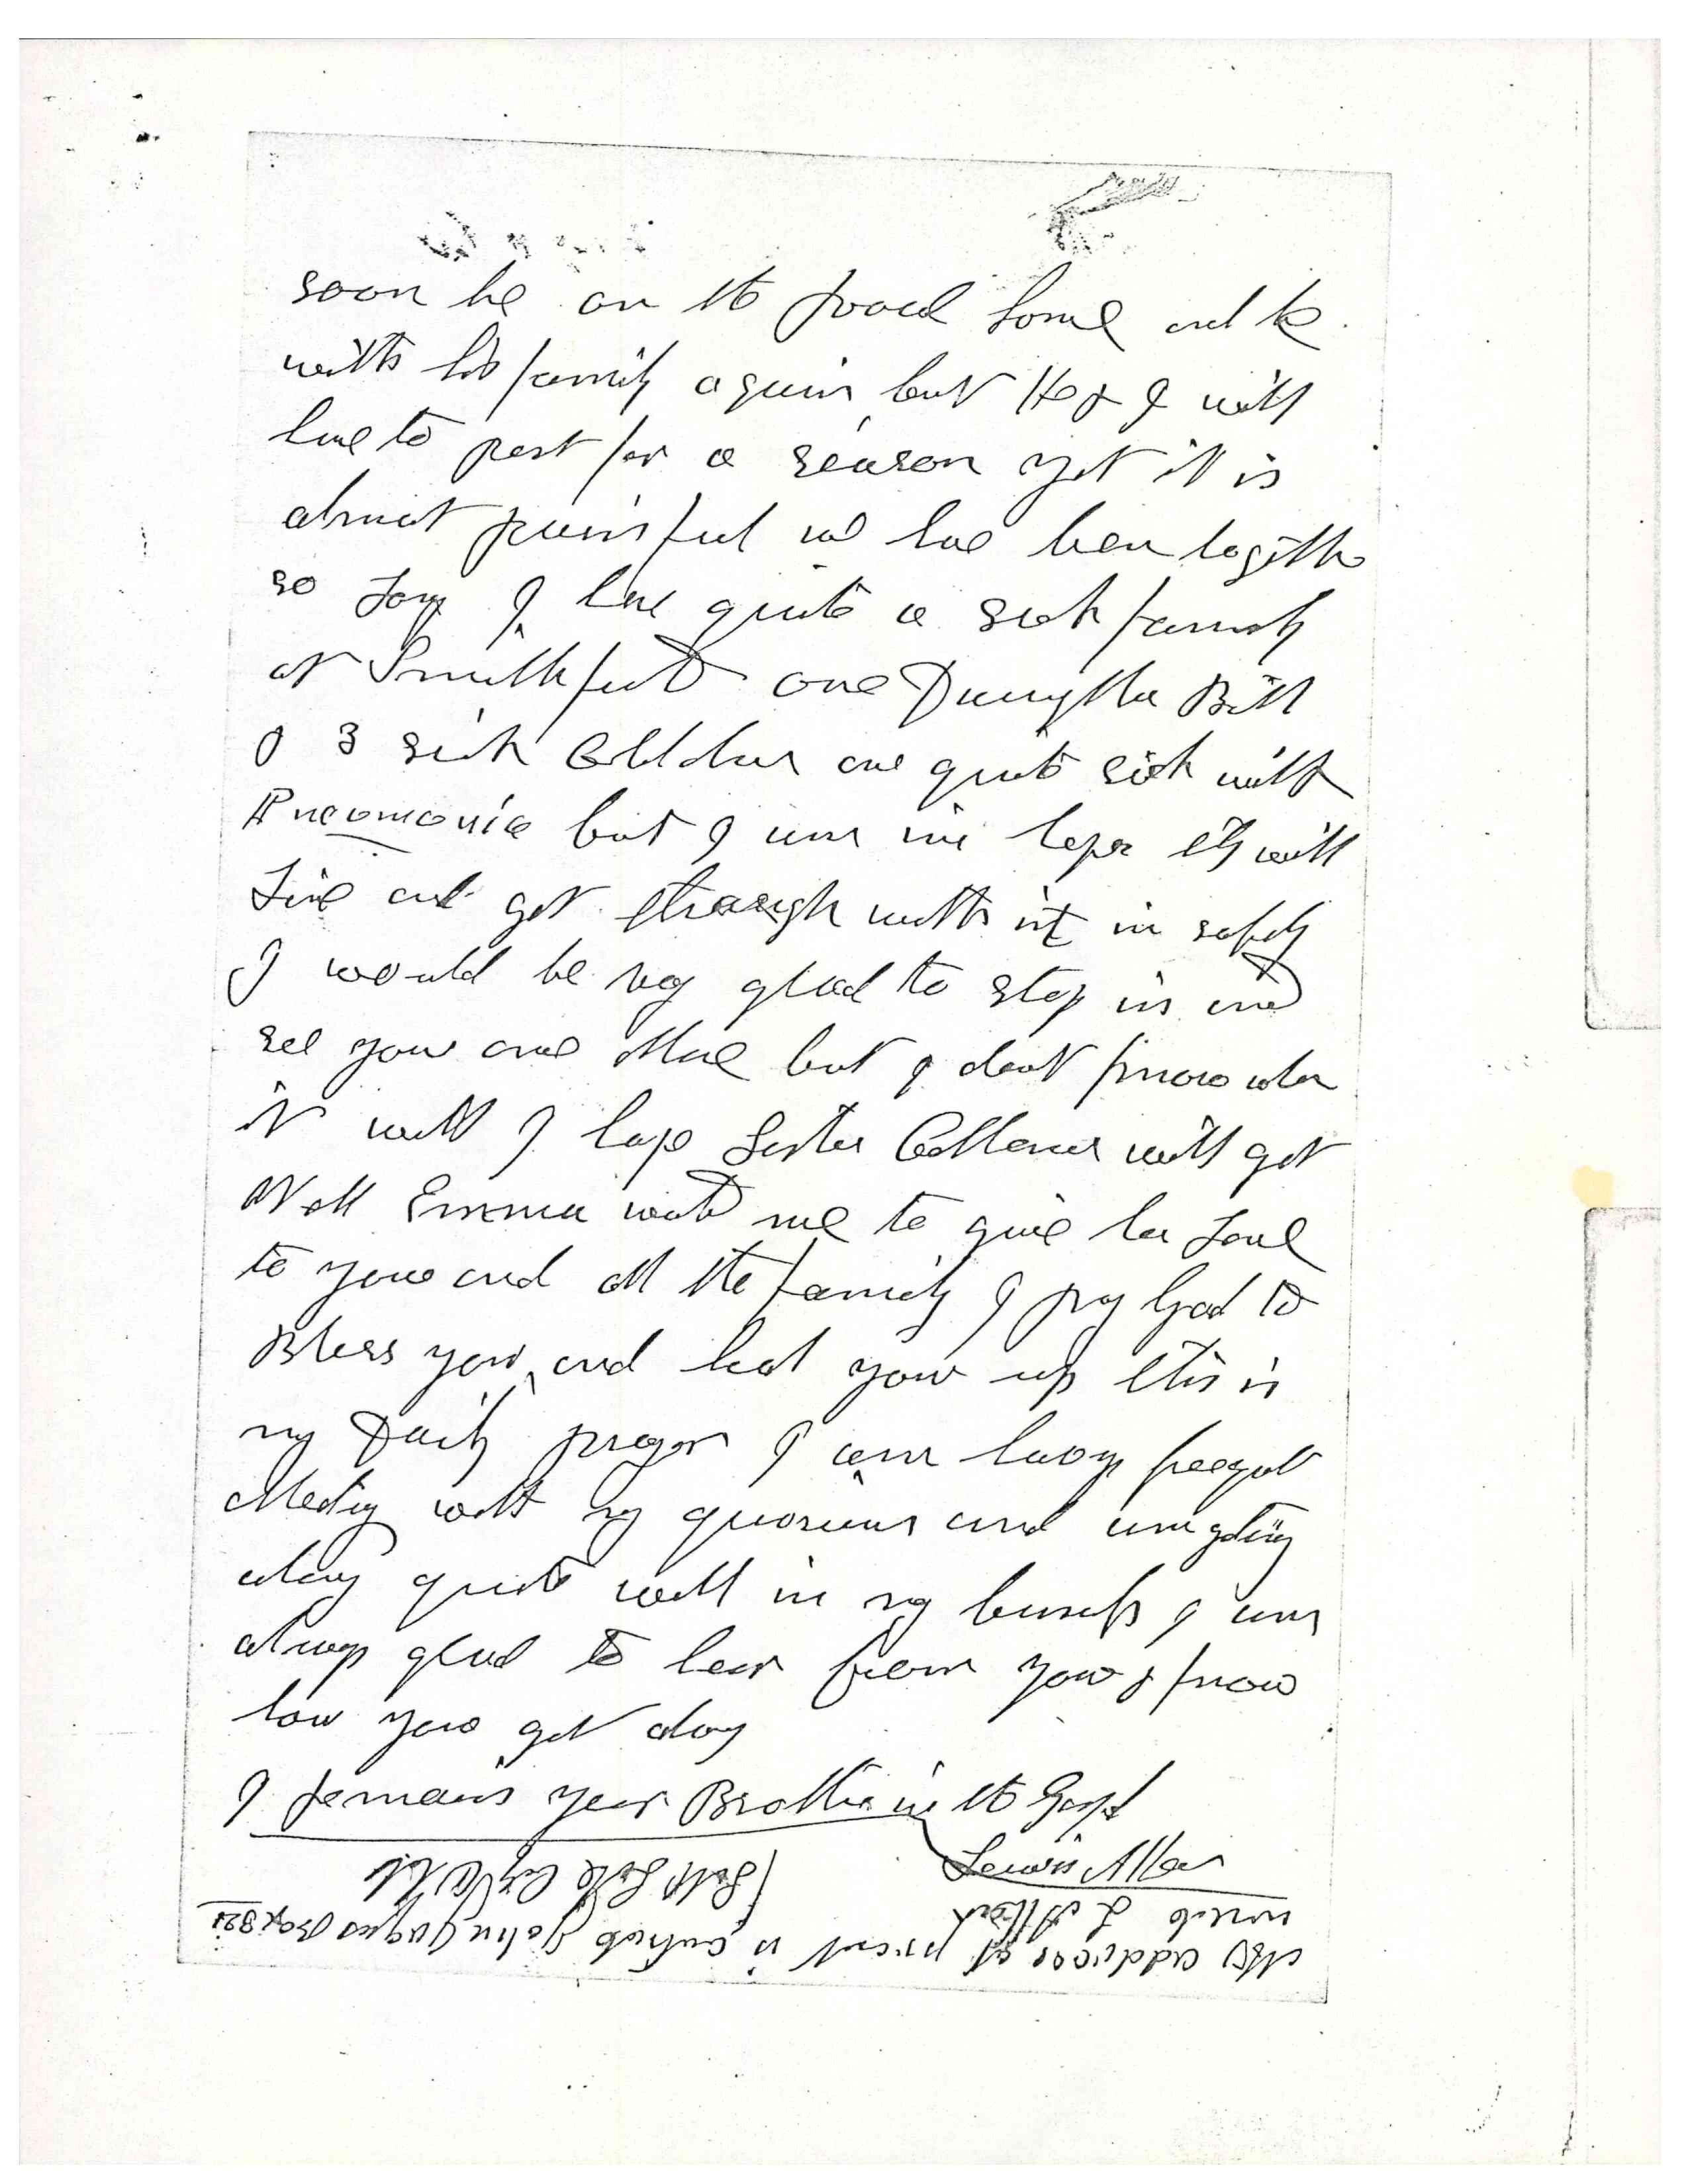 soon be on the road home and be
with his family again but He & I will
have to part for a season yet it is
almost painful we have been together
so long I have quite a sick family
at Smithfield one Daughter Bill
& 3 sick Children one quite sick with
Pneomonia but I am in hops they will
Live and get through with it in safety
I would be very glad to step in and
see you one More but I dont know when
it will I hope Sister will get
Well Emma wants me to give her Love
to you and all the family I pray God to
Bless you and heal you up this is
my Daily prayer I am having frequent
Meeting with my quorums and am geting
along quite well in my I am
always glad to hear from you & know
how you get along
I remain your Brother in the Gospel
Lewis Allen
Salt Lake City Utah
L Allen
My address at present is John Box 321